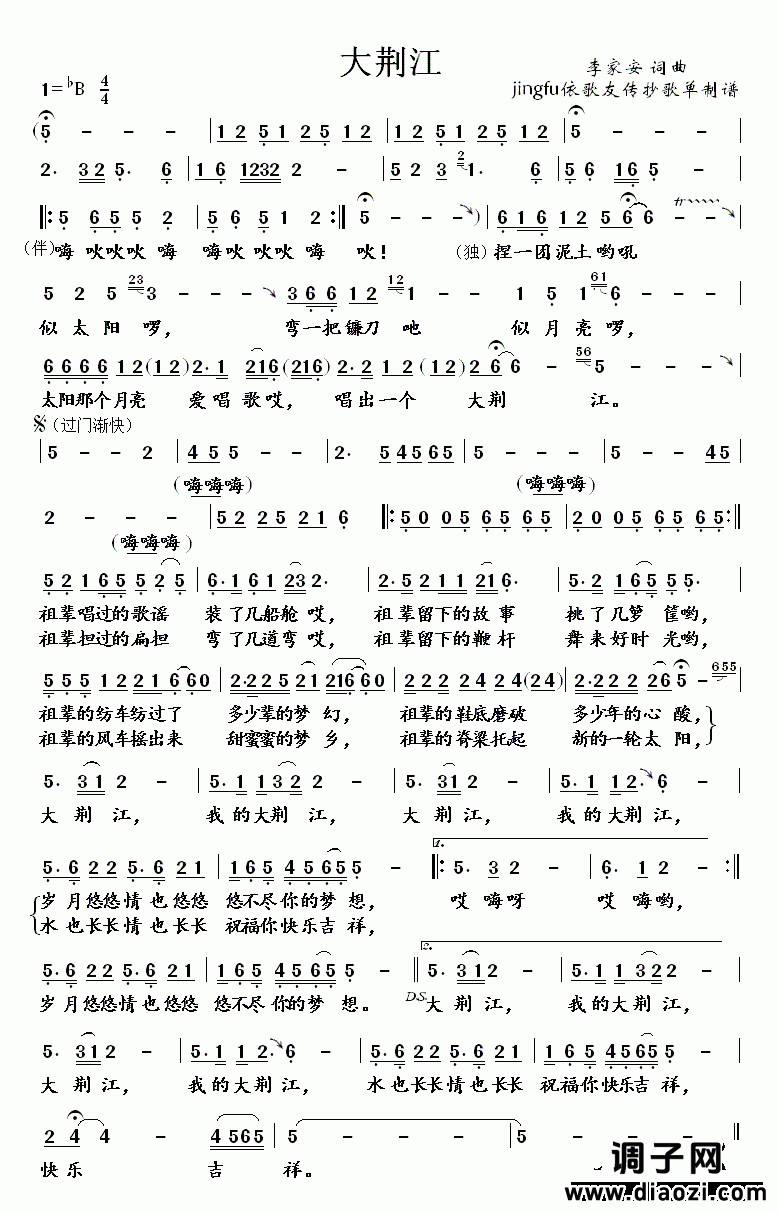 大荆江
李家安 词曲
1=♭B 4/4
jingfu依歌友传抄歌单制谱
(5 - - - | 1 2 5 1 2 5 1 2 | 1 2 5 1 2 5 1 2 | 5 - - - |
2· 3 2 5· 6 | 1 6 1232 2 - | 5 2 3 2 1· 6 | 5 6 16 5 - |
‖: 5 6 5 5 2 | 5 6 5 1 2 :‖ 5 - - ) | 6 1 6 1 2 5 6 6 - - |
(伴)嗨 吙吙吙 嗨 嗨吙 吙吙 嗨 吙! (独) 捏一团泥土哟吼
5 2 5 23 3 - - - 3 6 6 1 2 12 1 - - 1 5 1 61 6 - - - |
似 太 阳 啰, 弯一把镰刀 吔 似 月 亮 啰,
6 6 6 6 1 2 (1 2) 2· 1 2 1 6 (2 1 6) 2· 2 1 2 (1 2) 2 6 6 - 56 5 - - - |
太阳那个月亮 爱唱歌哎, 唱出一个 大荆 江。
𝄋(过门渐快)
| 5 - - 2 | 4 5 5 - - | 2· 5 4 5 6 5 | 5 - - - | 5 - - 4 5 |
(嗨嗨嗨) (嗨嗨嗨)
2 - - - | 5 2 2 5 2 1 6 ‖: 5 0 0 5 6 5 6 5 | 2 0 0 5 6 5 6 5 :‖
(嗨嗨嗨)
5 2 1 6 5 5 2 5 | 6· 1 6 1 2 3 2 2· | 5· 2 1 1 2 1 6 6· | 5· 2 1 6 5 5 5· |
祖辈唱过的歌谣 装了几船舱 哎, 祖辈留下的故 事 挑了几箩 筐哟,
祖辈担过的扁担 弯了几道弯 哎, 祖辈留下的鞭 杆 舞来好时 光哟,
5 5 5 5 1 2 2 1 6 6 0 | 2· 2 2 5 2 1 2 1 6 6 0 | 2 2 2 2 4 2 4 (2 4) | 2· 2 2 2 2 6 5 - 655 |
祖辈的纺车纺过了 多少辈的梦 幻, 祖辈的鞋底磨破 多少年的心 酸,
祖辈的风车摇出来 甜蜜蜜的梦 乡, 祖辈的脊梁托起 新的一轮太 阳,
5· 3 1 2 - | 5· 1 1 3 2 2 - | 5· 3 1 2 - | 5· 1 1 2· 6 - |
大 荆 江, 我的大荆 江, 大 荆 江, 我的大荆 江,
1.
5· 6 2 2 5· 6 2 1 | 1 6 5 4 5 6 5 5 - ‖: 5· 3 2 - | 6· 1 2 - :‖
岁月悠悠情也悠悠 悠不尽你的梦 想, 哎 嗨呀 哎 嗨哟,
水也长长情也长长 祝福你快乐吉 祥,
2.
5· 6 2 2 5· 6 2 2 | 1 6 5 4 5 6 5 5 - ‖ 5· 3 1 2 - | 5· 1 1 3 2 2 - |
岁月悠悠情也悠悠 悠不尽你的梦 想。 D.S. 大 荆 江, 我的大荆 江,
5· 3 1 2 - | 5· 1 1 2· 6 - | 5· 6 2 2 5· 6 2 2 | 1 6 5 4 5 6 5 5 - |
大 荆 江, 我的大荆 江, 水也长长情也长长 祝福你快乐吉 祥,
2 4 4 - 4 5 6 5 | 5 - - - | 5 - - - ‖
快乐 吉 祥。
调子网
www.diaozi.com